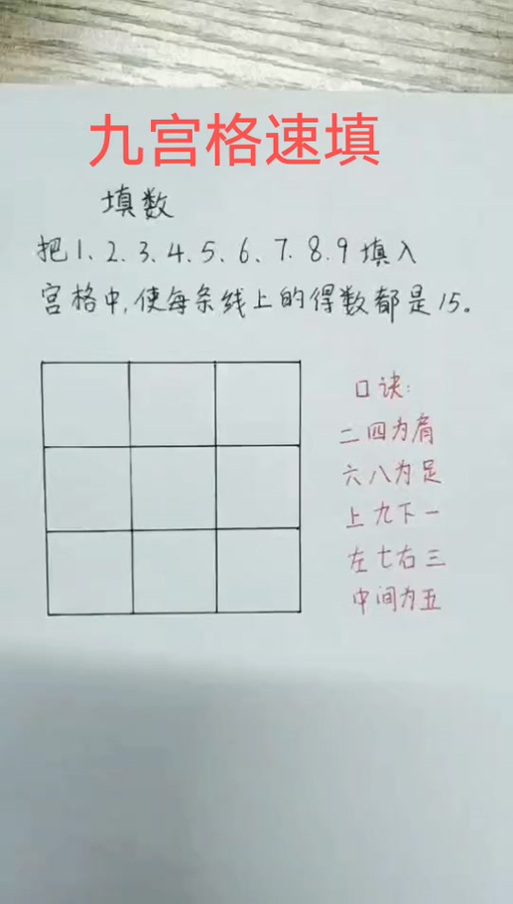 九宫格速填
填数
把1、2、3、4、5、6、7、8、9填入
宫格中,使每条线上的得数都是15。
口诀:
二四为肩
六八为足
上九下一
左七右三
中间为五